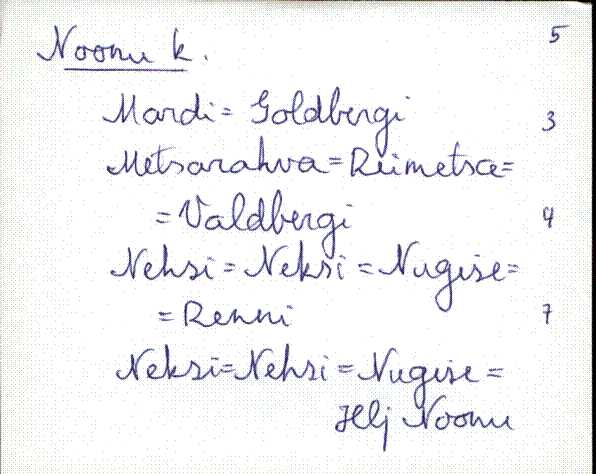 Noonu k. 5
Mardi = Goldbergi 3
Metsarahva = Reimetsa =
= Valdbergi 4
Nehsi = Neksi = Nugise =
= Renni 7
Neksi = Nehsi = Nugise =
Noonu